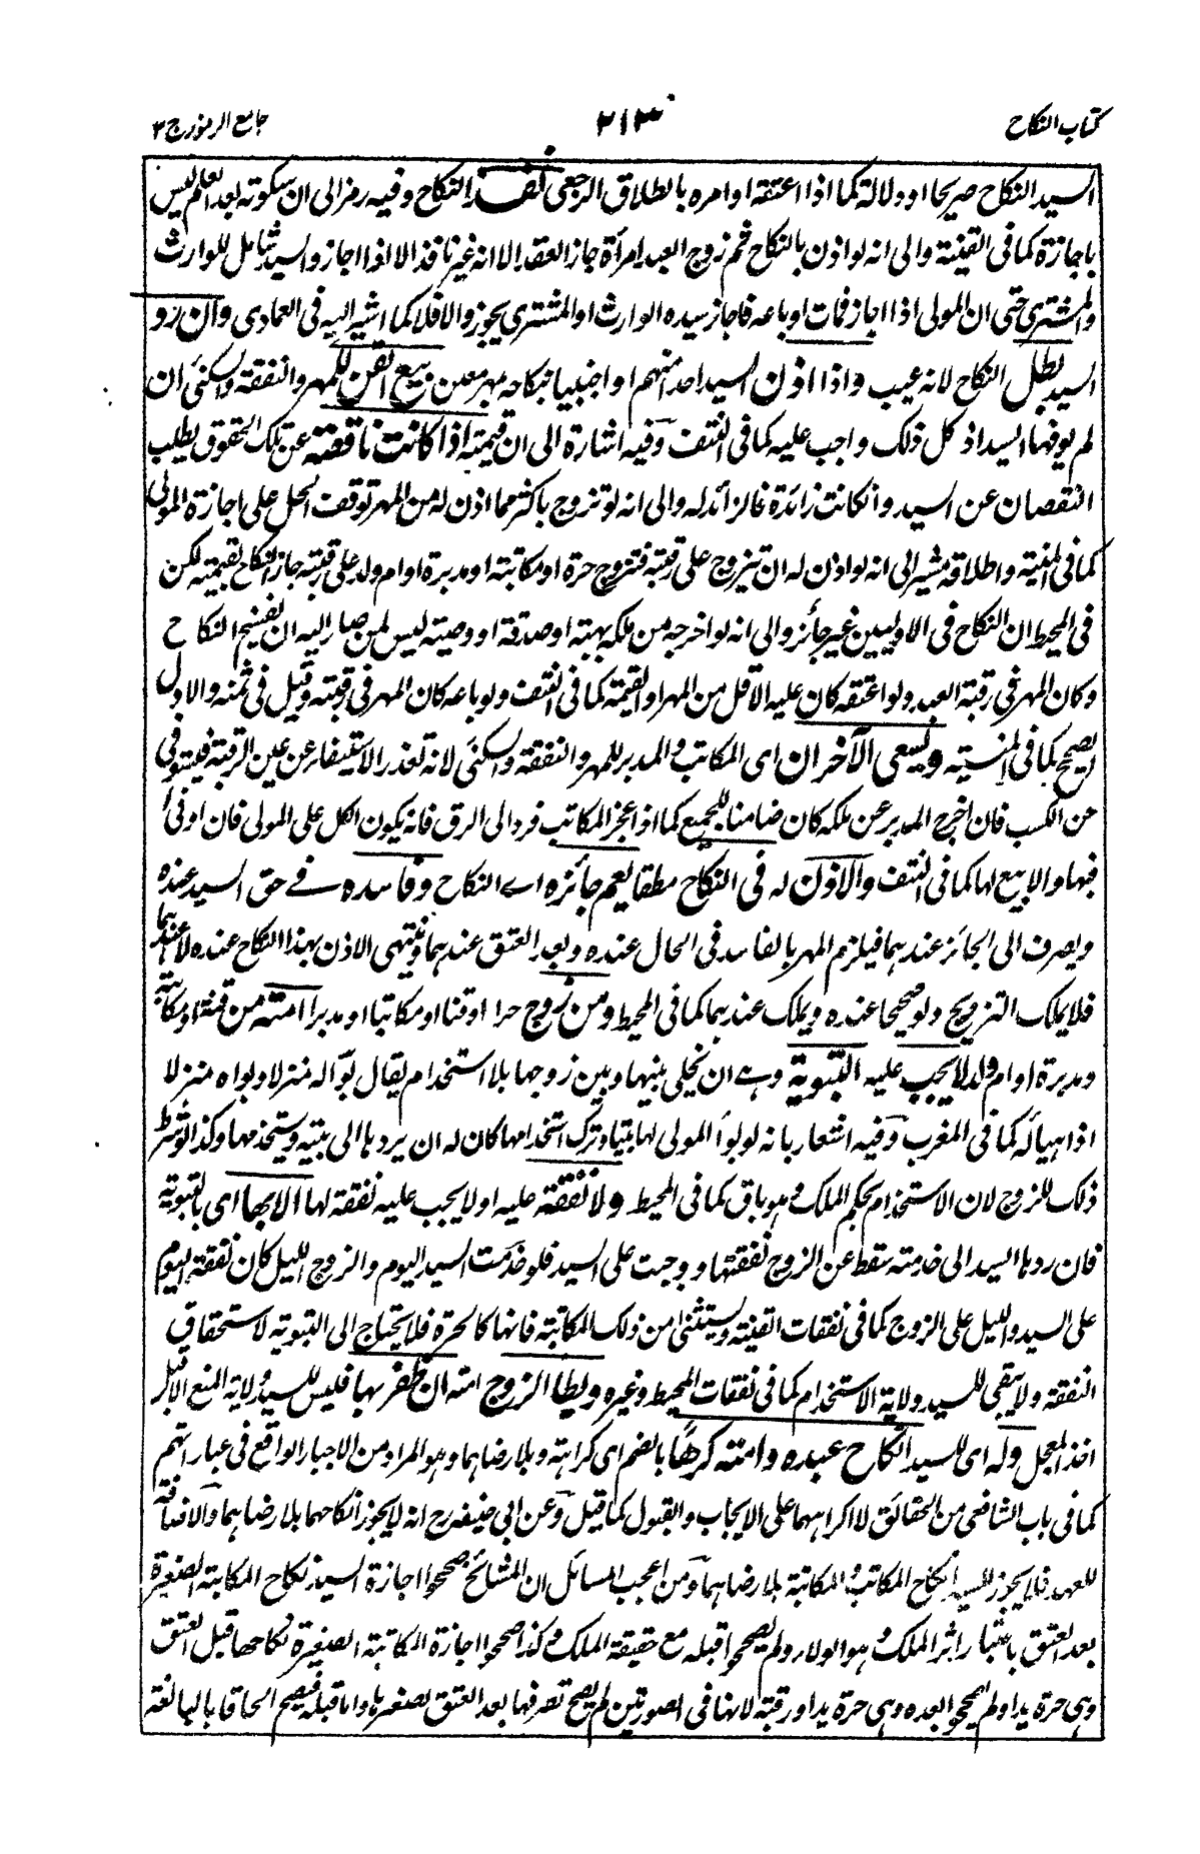 كتاب النكاح
٢١٣
جامع الرموز ج ٢
السيد النكاح صريحا او دلالة كما اذا اعتقه او امره بالطلاق الرجعى نفذ النكاح وفيه رمز الى ان سكوته بعد العلم ليس
باجازة كما فى القنية والى انه لو اذن بالنكاح ثم زوج العبد امرأة جاز العقد الا انه غير نافذ الا اذا اجاز والسيد شامل للوارث
والمشترى حتى ان المولى اذا اجاز فمات او باعه فاجاز سيده الوارث او المشترى يجوز والا فلا كما اشير اليه فى العمادى وان رد
السيد بطل النكاح لانه عيب واذا اذن السيد احدا منهم او اجنبيا بنكاحه مهر معين بيع القن للمهر والنفقة والسكنى ان
لم يوفها السيد اذ كل ذلك واجب عليه كما فى النتف وفيه اشارة الى ان قيمته اذا كانت ناقصة عن تلك الحقوق يطلب
النقصان عن السيد وان كانت زائدة فالزائد له والى انه لو تزوج باكثر مما اذن له من المهر توقف الحل على اجازة المولى
كما فى المنية واطلاقه مشير الى انه لو اذن له ان يتزوج على رقبته فتزوج حرة او مكاتبة او مدبرة او ام ولد على رقبته جاز النكاح بقيمته لكن
فى المحيط ان النكاح فى الاوليين غير جائز والى انه لو اخرجه من ملكه بهبته او صدقة او وصيته ليس لمن صار اليه ان يفسخ النكاح
وكان المهر فى رقبة العبد ولو اعتقه كان عليه الاقل من المهر والقيمة كما فى النتف ولو باعه كان المهر فى رقبته وقيل فى ثمنه والاول
يصح كما فى المنية ويسعى الآخران اى المكاتب والمدبر للمهر والنفقة والسكنى لانه تعذر الاستيفاء عن عين الرقبة فيستوفى
من الكسب فان اخرج المدبر عن ملكه كان ضامنا للجميع كما اذا عجز المكاتب فرد الى الرق فانه يكون الكل على المولى فان اوفى
فبها والا بيع لها كما فى النتف والاذن له فى النكاح مطلقا يعم جائزه اے النكاح وفاسده فے حق السيد عنده
ويصرف الى الجائز عندهما فيلزم المهر بالفاسد فى الحال عنده وبعد العتق عندهما وينتهى الاذن بهذا النكاح عنده لا عندهما
فلا يملك التزويج ولو صحيحا عنده ويملك عندهما كما فى المحيط ومن زوج حرا او قنا او مكاتبا او مدبرا امته من قنة او مكاتبة
ومدبرة او ام ولد لا يجب عليه التبوية وہے ان يخلى بينها وبين زوجها بلا استخدام يقال بوّأ له منزلا وبواه منزلا
اذا هيأ له كما فى المغرب وفيه اشعار بانه لو بوأ المولى لها بيتا وترك استخدامها كان له ان يردها الى بيته ويستخدمها وكذا لو شرط
ذلك للزوج لان الاستخدام بحكم الملك وهو باق كما فى المحيط ولا نفقة عليه او لا يجب عليه نفقة لها الا بها اى بالتبوية
فان ردها السيد الى خدمته سقط عن الزوج نفقتها ووجبت على السيد فلو خدمت السيد اليوم والزوج الليل كان نفقة اليوم
على السيد والليل على الزوج كما فى نفقات القنية ويستثنى من ذلك المكاتبة فانها كالحرة فلا يحتاج الى التبوية لاستحقاق
النفقة ولا يبقى للسيد ولاية الاستخدام كما فى نفقات المحيط وغيره ويطأ الزوج امته ان ظفر بها فليس للسيد ولاية المنع الا قبل
اخذ المعجل وله اى للسيد انكاح عبده وامته كرها بالضم اى كراهة وبلا رضاهما وهو المراد من الاجبار الواقع فى عباراتهم
كما فى باب الشافعى من الحقائق لا اكراههما على الايجاب والقبول كما قيل وعن ابى حنيفة رح انه لا يجوز انكاحهما بلا رضاهما والاضافة
للعهد فلا يجوز للسيد انكاح المكاتب والمكاتبة بلا رضاهما ومن اعجب المسائل ان المشائخ صححوا اجازة السيد نكاح المكاتبة الصغيرة
بعد العتق باعتبار اثر الملك وهو الولاء ولم يصححوا قبله مع حقيقة الملك وكذا صححوا اجازة المكاتبة الصغيرة نكاحها قبل العتق
وہى حرة يدا ولم يصححوا بعده وہى حرة يدا ورقبة لانها فى الصورتين لم يصح تصرفها بعد العتق لصغرها واما قبله فيصح الحاقا بالبالغة